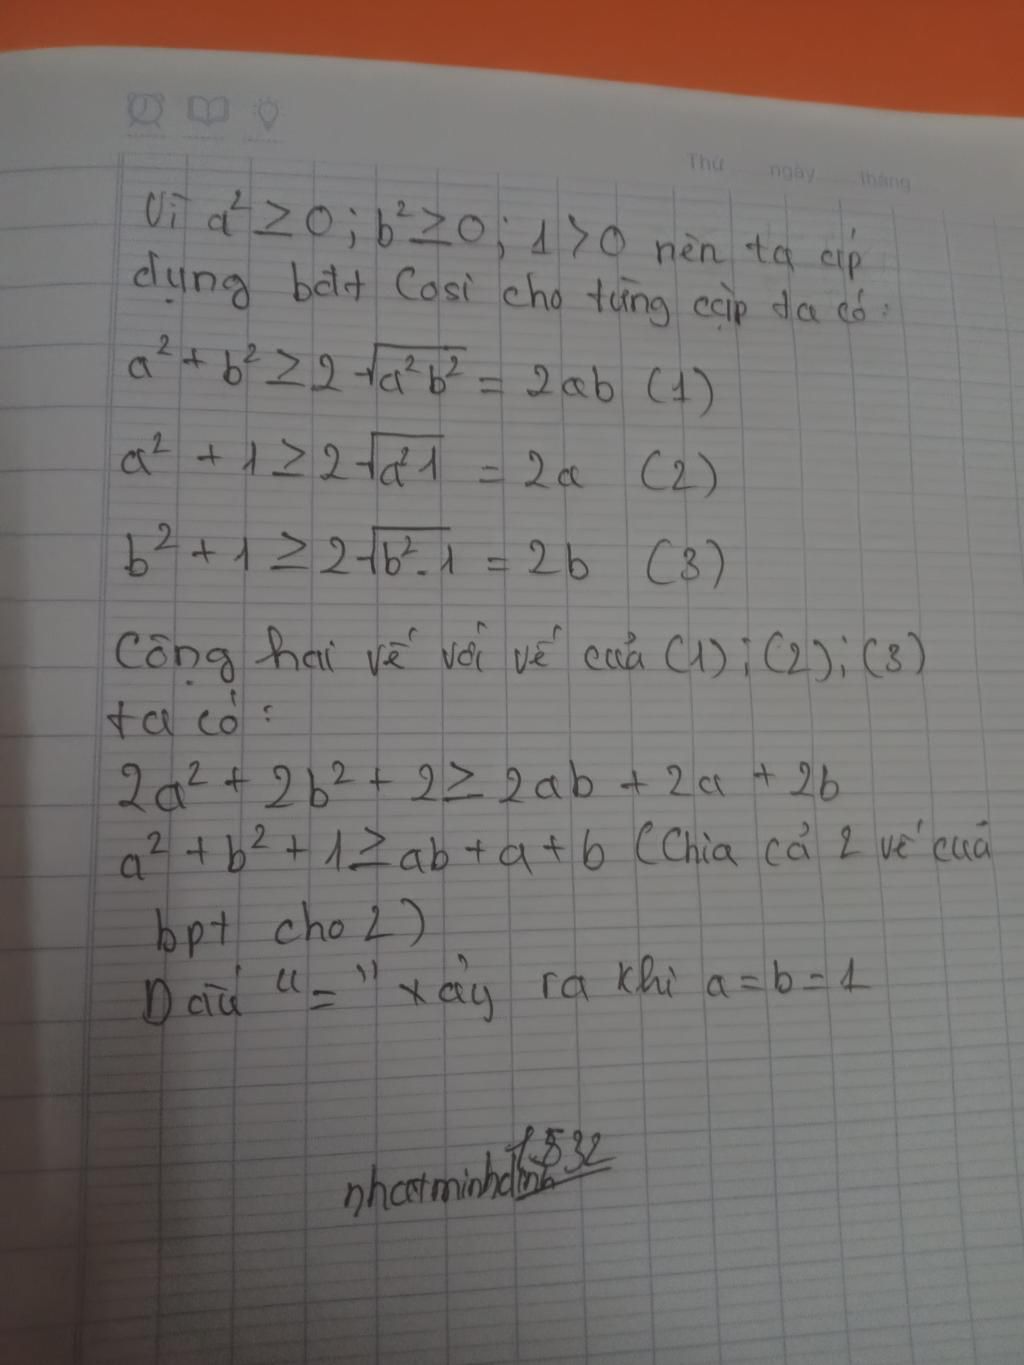 Thứ ngày tháng
Vì a² ≥ 0; b² ≥ 0; 1 > 0 nên ta áp
dụng bđt Cosi cho từng cặp ta có:
a² + b² ≥ 2√a²b² = 2ab (1)
a² + 1 ≥ 2√a²1 = 2a (2)
b² + 1 ≥ 2√b².1 = 2b (3)
Cộng hai vế với vế của (1); (2); (3)
ta có:
2a² + 2b² + 2 ≥ 2ab + 2a + 2b
a² + b² + 1 ≥ ab + a + b (Chia cả 2 vế của
bpt cho 2)
Dấu "=" xảy ra khi a = b = 1